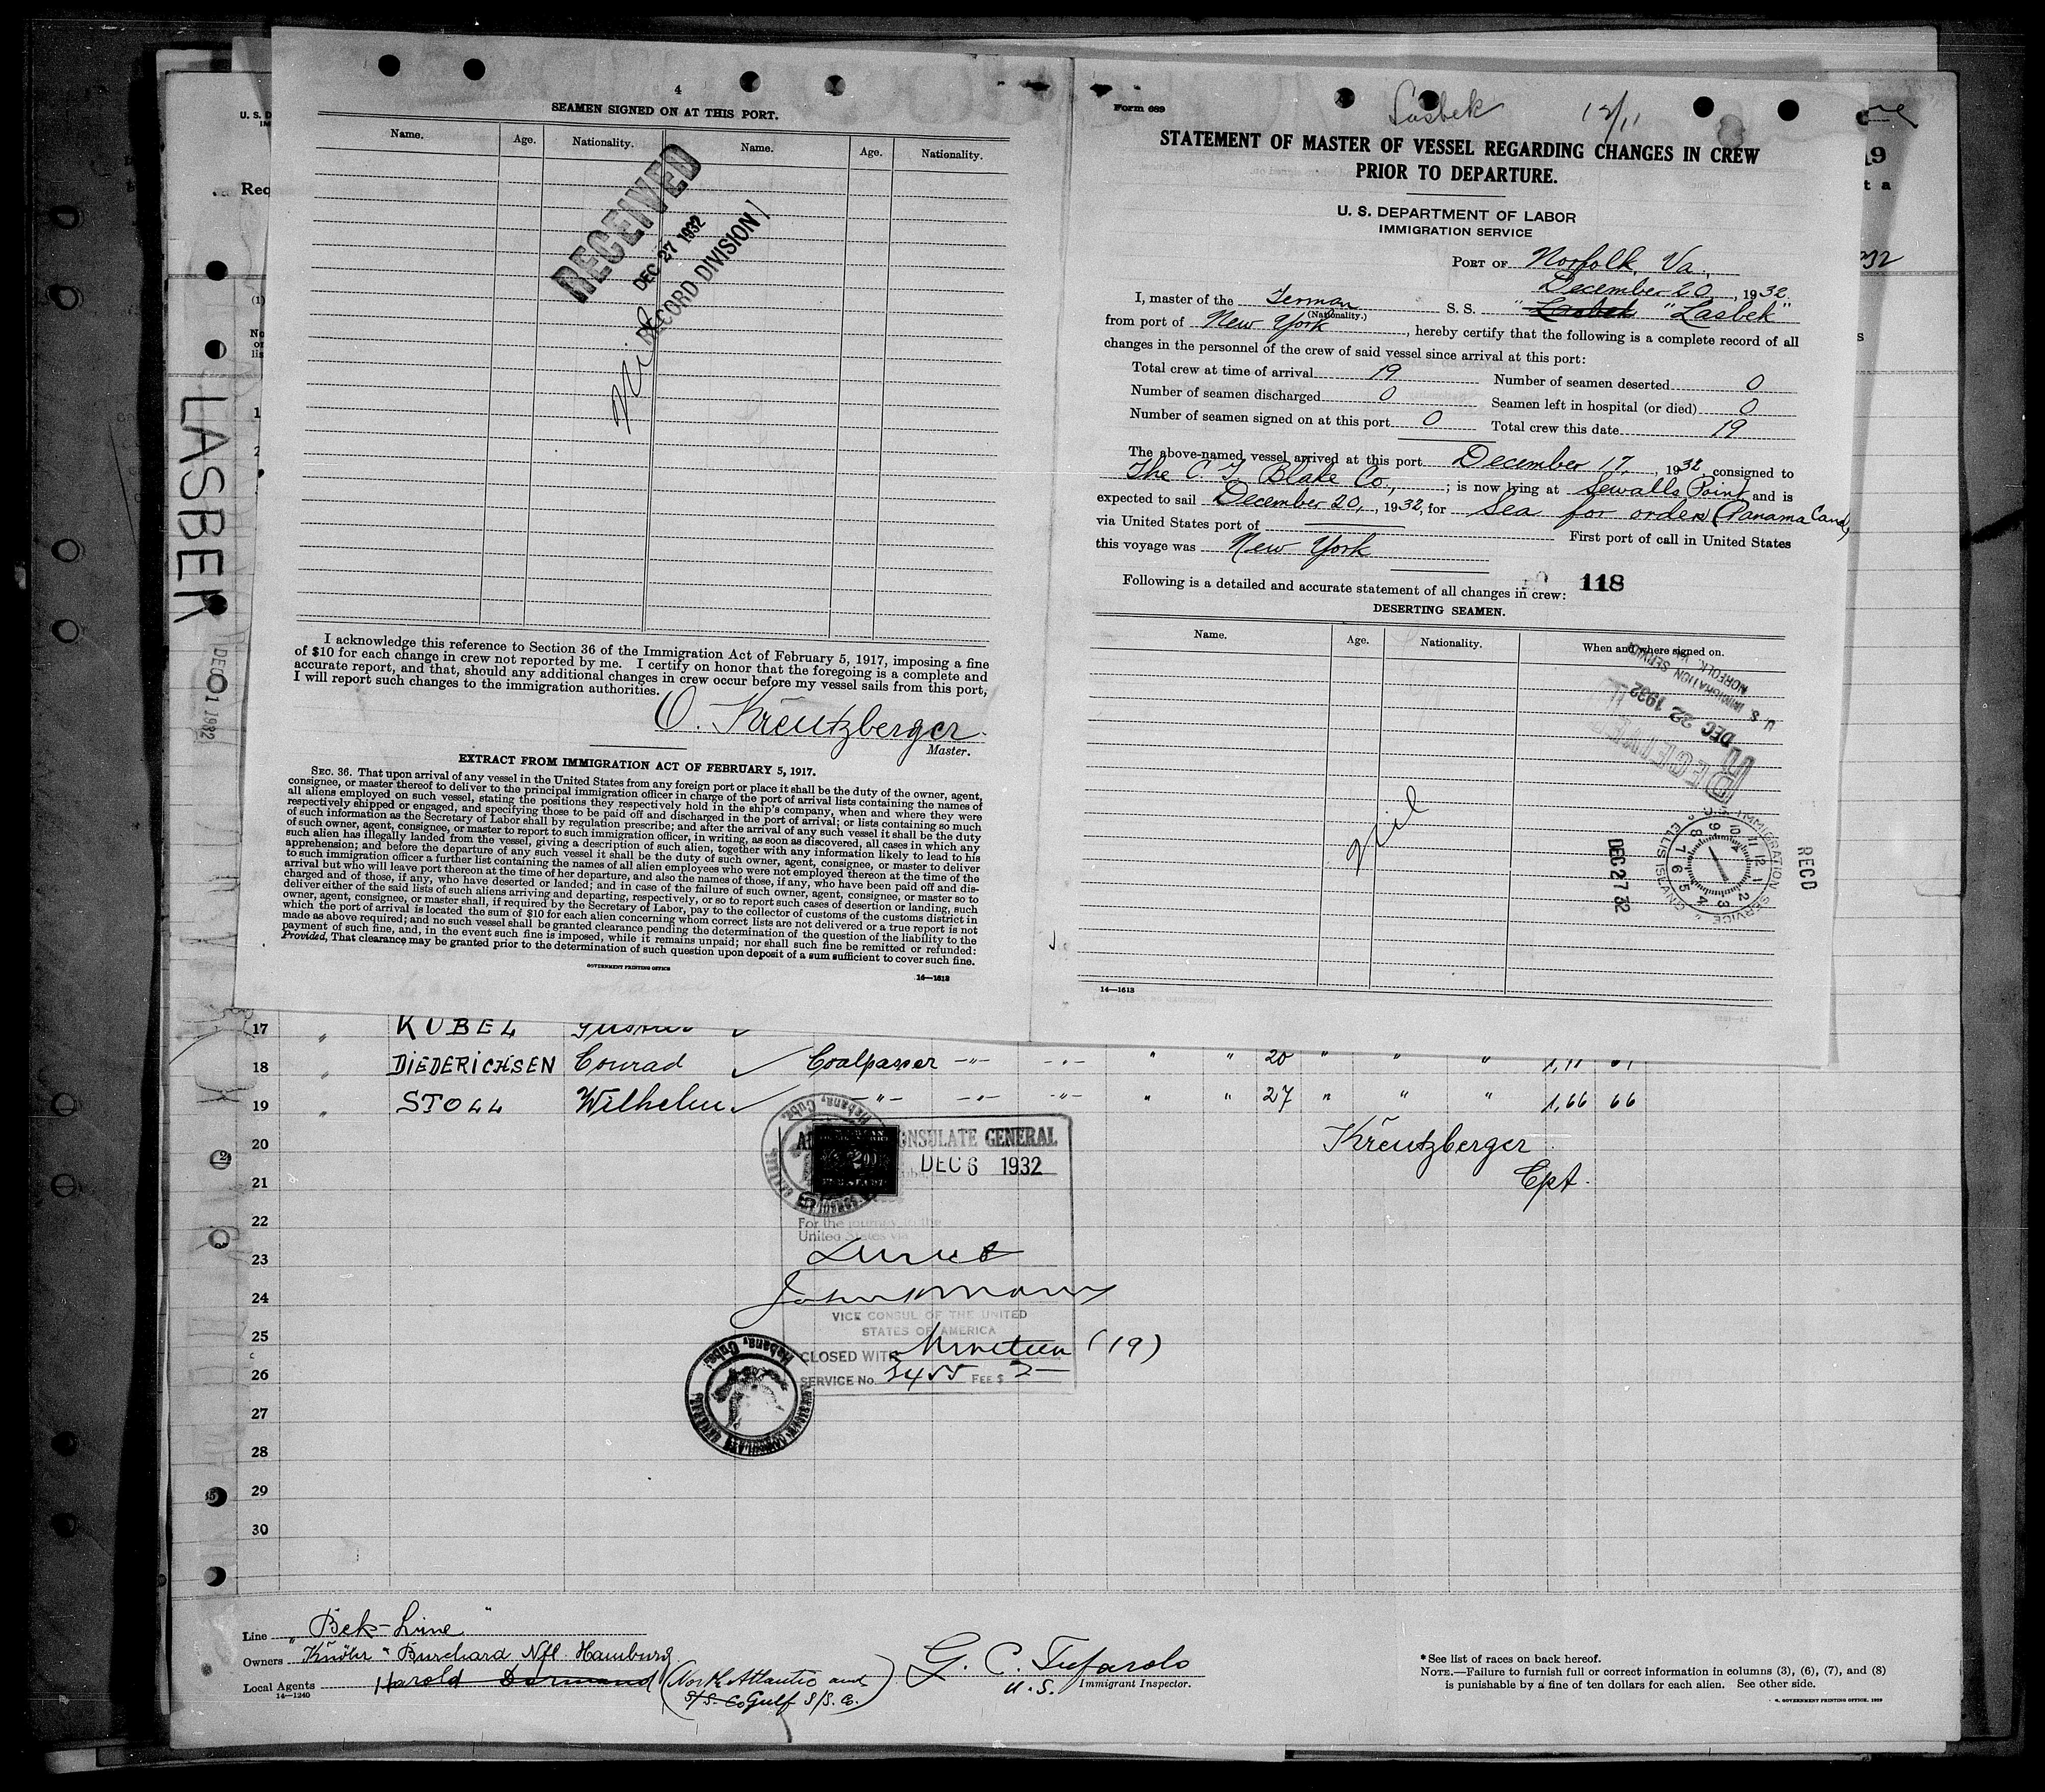 4
SEAMEN SIGNED ON AT THIS PORT.
Name. Age. Nationality. Name. Age. Nationality.
RECEIVED
DEC 27 1932
RECORD DIVISION
Nil
I acknowledge this reference to Section 36 of the Immigration Act of February 5, 1917, imposing a fine
of $10 for each change in crew not reported by me. I certify on honor that the foregoing is a complete and
accurate report, and that, should any additional changes in crew occur before my vessel sails from this port,
I will report such changes to the immigration authorities.
O. Kreutzberger
Master.
EXTRACT FROM IMMIGRATION ACT OF FEBRUARY 5, 1917.
SEC. 36. That upon arrival of any vessel in the United States from any foreign port or place it shall be the duty of the owner, agent,
consignee, or master thereof to deliver to the principal immigration officer in charge of the port of arrival lists containing the names of
all aliens employed on such vessel, stating the positions they respectively hold in the ship's company, when and where they were
respectively shipped or engaged, and specifying those to be paid off and discharged in the port of arrival; or lists containing so much
of such information as the Secretary of Labor shall by regulation prescribe; and after the arrival of any such vessel it shall be the duty
of such owner, agent, consignee, or master to report to such immigration officer, in writing, as soon as discovered, all cases in which any
such alien has illegally landed from the vessel, giving a description of such alien, together with any information likely to lead to his
apprehension; and before the departure of any such vessel it shall be the duty of such owner, agent, consignee, or master to deliver
to such immigration officer a further list containing the names of all alien employees who were not employed thereon at the time of the
arrival but who will leave port thereon at the time of her departure, and also the names of those, if any, who have been paid off and dis-
charged and of those, if any, who have deserted or landed; and in case of the failure of such owner, agent, consignee, or master so to
deliver either of the said lists of such aliens arriving and departing, respectively, or so to report such cases of desertion or landing, such
owner, agent, consignee, or master shall, if required by the Secretary of Labor, pay to the collector of customs of the customs district in
which the port of arrival is located the sum of $10 for each alien concerning whom correct lists are not delivered or a true report is not
made as above required; and no such vessel shall be granted clearance pending the determination of the question of the liability to the
payment of such fine, and, in the event such fine is imposed, while it remains unpaid; nor shall such fine be remitted or refunded:
Provided, That clearance may be granted prior to the determination of such question upon deposit of a sum sufficient to cover such fine.
GOVERNMENT PRINTING OFFICE
14—1613
Form 689
12/11
STATEMENT OF MASTER OF VESSEL REGARDING CHANGES IN CREW
PRIOR TO DEPARTURE.
U. S. DEPARTMENT OF LABOR
IMMIGRATION SERVICE
PORT OF Norfolk Va.,
December 20, 1932.
I, master of the German S. S. "Lasbek"
(Nationality.)
from port of New York, hereby certify that the following is a complete record of all
changes in the personnel of the crew of said vessel since arrival at this port:
Total crew at time of arrival 19 Number of seamen deserted 0
Number of seamen discharged 0 Seamen left in hospital (or died) 0
Number of seamen signed on at this port 0 Total crew this date 19
The above-named vessel arrived at this port December 17, 1932, consigned to
The C. G. Blake Co., ; is now lying at Sewalls Point and is
expected to sail December 20, 1932, for Sea for orders (Panama Canal)
via United States port of First port of call in United States
this voyage was New York
Following is a detailed and accurate statement of all changes in crew: 118
DESERTING SEAMEN.
Name. Age. Nationality. When and where signed on.
U. S. IMMIGRATION SERVICE
NORFOLK, VA.
DEC 22 1932
RECEIVED
Nil
U.S. IMMIGRATION SERVICE
ELLIS ISLAND
RECD
DEC 27 32
14—1613
LASBEK
DEC 1 1932
17 KUBEL
18 " DIEDERICHSEN Conrad Coalpasser -"- -"- " " 20 " " "
19 " STOLL Wilhelm -"- -"- -"- " " 27 " " " 1,66 66
20 Kreutzberger
21 Cpt.
22
23
24
25
26
27
28
29
30
CONSULATE GENERAL
DEC 6 1932
Habana, Cuba
For the journey to the
United States via
VICE CONSUL OF THE UNITED
STATES OF AMERICA
CLOSED WITH Nineteen (19)
SERVICE No. 3455 FEE $ 2—
Habana, Cuba.
Line "Bek-Line"
Owners Knöhr & Burchard Nfl. Hamburg
Local Agents Harold Dormand (North Atlantic and
S/S. Co Gulf S/S. Co.)
14—1240
G. C. Tufarolo
U.S. Immigrant Inspector.
*See list of races on back hereof.
NOTE.—Failure to furnish full or correct information in columns (3), (6), (7), and (8)
is punishable by a fine of ten dollars for each alien. See other side.
U. S. GOVERNMENT PRINTING OFFICE, 1929